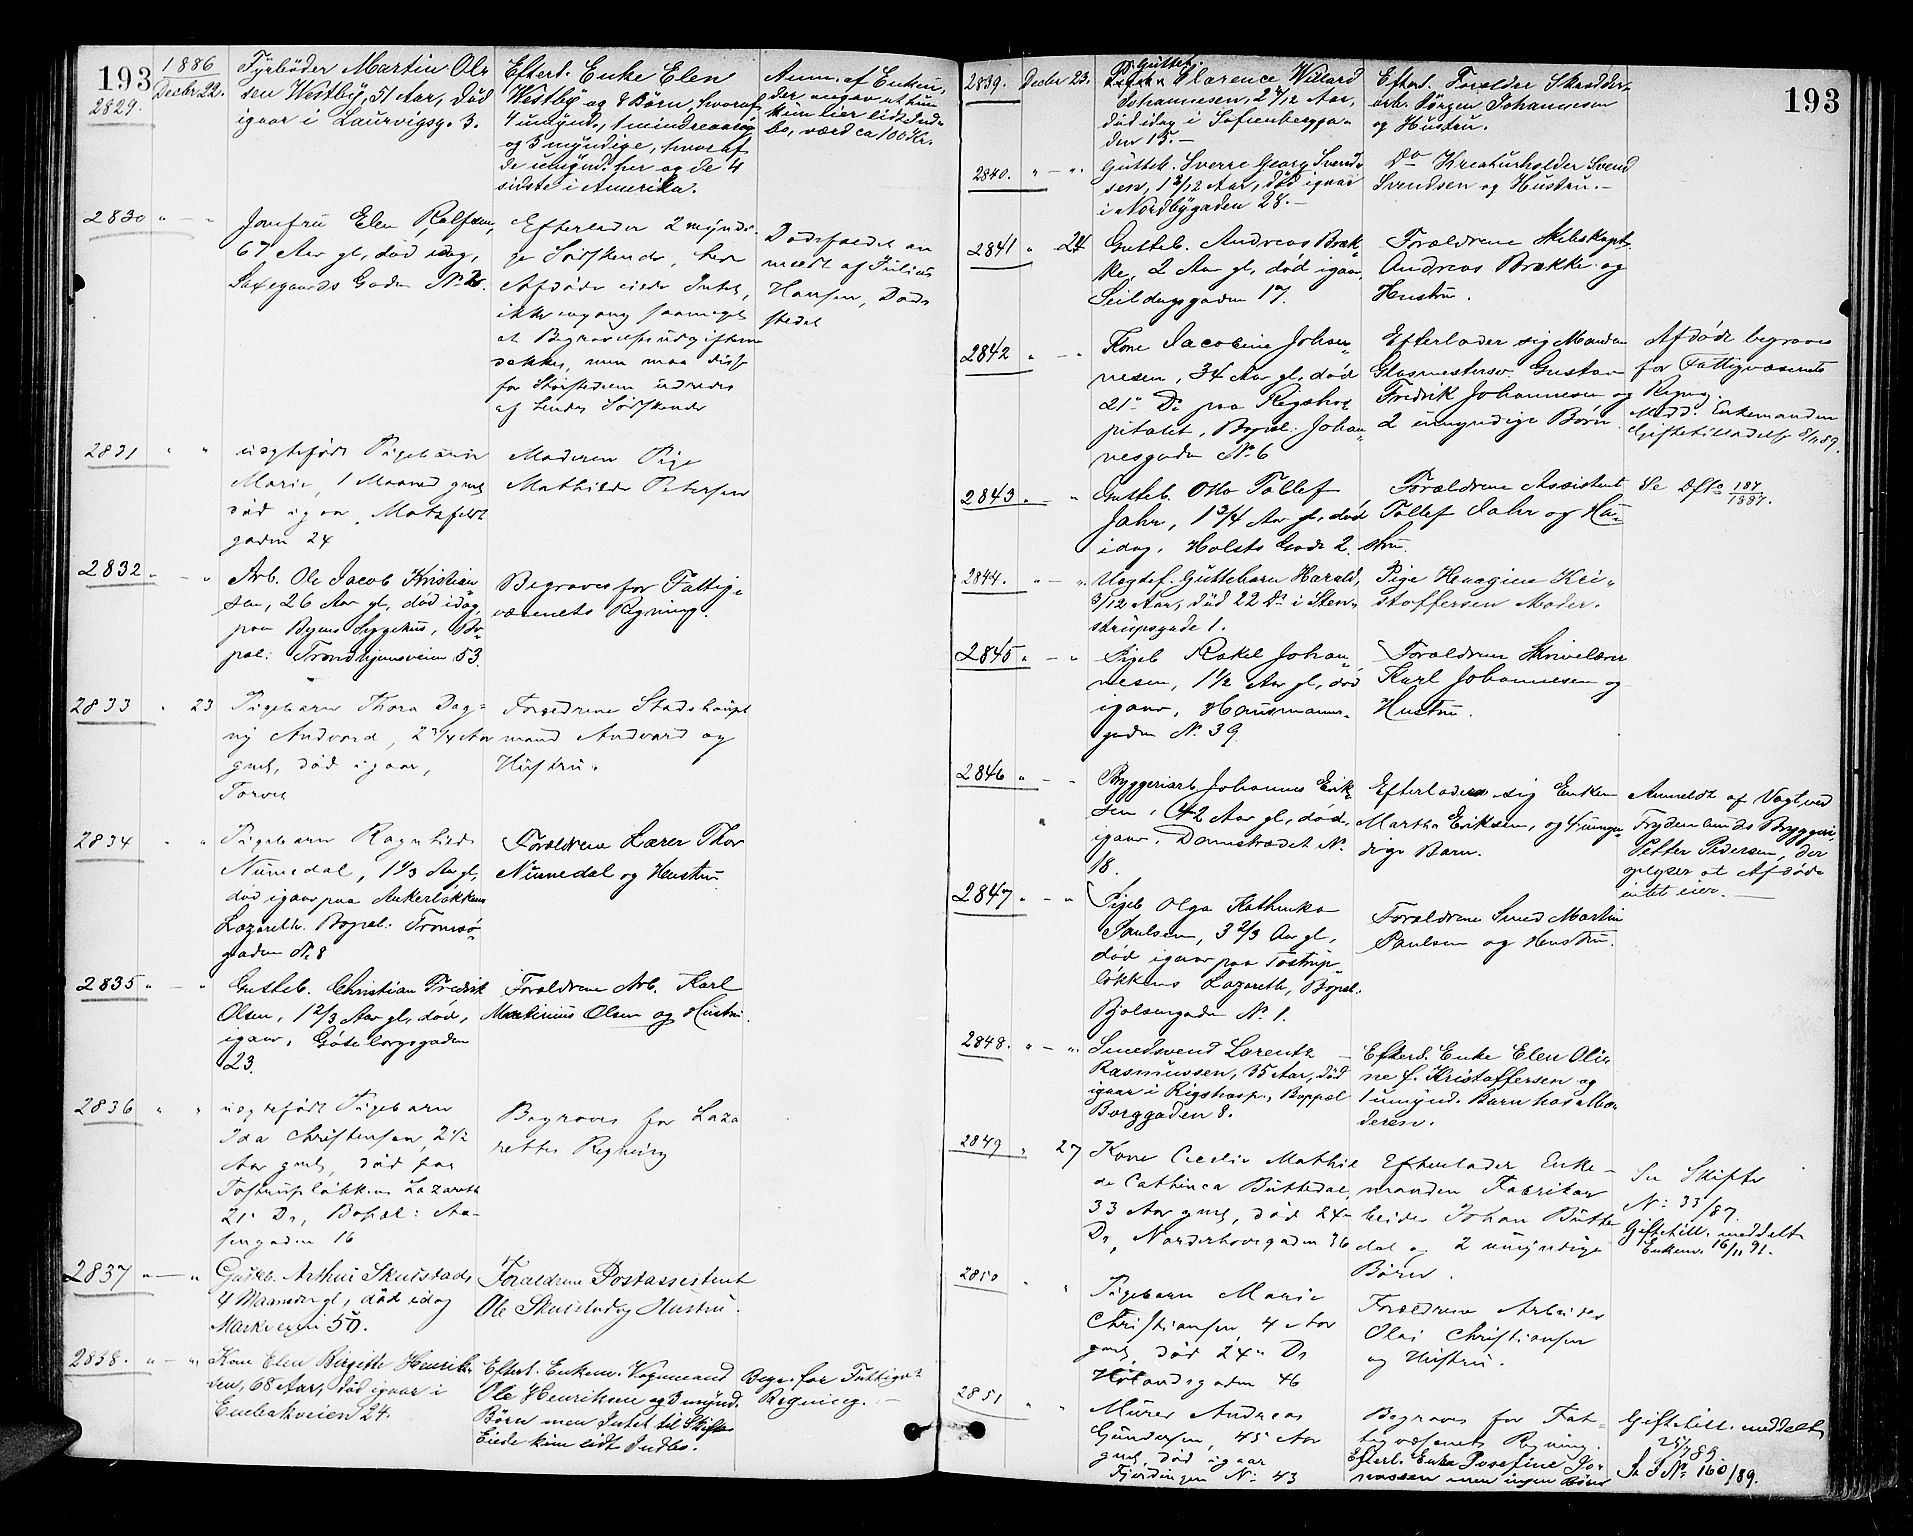 193
1886
2829. Decbr 22. Fyrbøder Martin Ol-
sen Westby, 51 Aar, død
igaar i Laurvigsg. 3.
Efterl. Enke Elen
Westby og 8 Børn, hvoraf
4 umynd., 1 mindreaarig
og 3 myndige, hvoraf
de umynd. her og de 4
sidste i Amerika.
Anm. af Enken,
der angav at hun
kun eier lidt Ind-
bo, værd ca 100 Kr.
2830 " - " Jomfru Elen Rolfsen,
67 Aar gl, død idag,
Saxegaards Gaden No
Efterlader 2 myndi-
ge Søskende, hun
Afdøde eiede Intet,
ikke engang saameget
at Begravelsesudgifterne
dækkes, men maa disse
for Størstedelen udredes
af hendes Søskende
Dødsfaldet an
meldt af Julius
Hansen, Døds
stedet
2831 " " uægtefødt Pigebarn
Marie, 1 Maaned gml
død igaar, Motzfeldt
gaden 24
Moderen Pige
Mathilde Petersen
2832 " - " Arb. Ole Jacob Kristian
sen, 26 Aar gl, død idag,
paa Byens Sygehus, Bo-
pæl: Trondhjemsveien 53.
Begraves for Fattig-
væsenets Regning.
2833 " 23 Pigebarn Thora Dag-
ny Andvord, 2 3/4 Aar
gml, død igaar,
Torvet
Forældrene Stadshaupt
mand Andvord og
Hustru.
2834 " " Pigebarn Ragnhild
Numedal, 1 1/3 Aar gl,
død igaar paa Ankerløkkens
Lazareth. Bopæl: Tromsø-
gaden No 8
Forældrene Lærer Thor
Numedal og Hustru
2835 " - " Gutteb. Christian Fredrik
Olsen, 1 2/3 Aar gl, død,
igaar, Göteborgsgaden
23.
Forældrene Arb. Karl
Martinius Olsen og Hustru.
2836 " " uægtefødt Pigebarn
Ida Christensen, 2 1/2
Aar gml, død paa
Tostrupløkkens Lazareth
21 Ds, Bopæl: Aa-
sengaden 16
Begraves for Laza
rettes Regning
2837 " - " Guttb. Arthur Skurstad
4 Maaneder gl, død idag
Markveien 50.
Forældrene Postassistent
Ole Skurstad og Hustru.
2838. " - " Kone Elen Birgitte Henrik-
sen, 68 Aar, død igaar i
Enebakveien 24.
Efterl. Enkem. Vognmand
Ole Henriksen og 3 mynd.
Børn men Intet til Skifte
Eiede kun lidt Indbo.
Begr. for Fattigv.s
Regning. -
193
2839. Decbr 23. Gutteb.
Clarence Willard
Johannesen, 2 2/12 Aar,
død idag i Sofienbergga-
den 15. -
Efterl. Forældre Skrædder-
arb. Jørgen Johannesen
og Hustru.
2840. " - " Gutteb. Sverre Georg Svend-
sen, 1 3/12 Aar, død igaar
i Nordbygaden 28. -
Do Kreaturholder Svend
Svendsen og Hustru. -
2841 " 24 Gutteb. Andreas Bræk-
ke, 2 Aar gl, død igaar,
Seildugsgaden 17.
Forældrene Skibskapt.
Andreas Brække og
Hustru.
2842 " - " Kone Jacobine Johan-
nesen, 34 Aar gl, død
21 Ds paa Rigshos
pitalet, Bopæl: Johan-
nesgaden No 6
Efterlader sig Manden
Glasmestersv. Gustav
Fredrik Johannesen og
2 umyndige Børn.
Afdøde begraves
for Fattigvæsenets
Regng.
Medd. Enkemanden
Giftetilladelse 8/1 89.
2843 " - " Gutteb. Otto Tollef
Jahr, 1 3/4 Aar gl, død
idag, Holsts Gade 2.
Forældrene Assistent
Tollef Jahr og Hu-
stru.
Se Dfl 187/1887.
2844. " - " Uægtef. Guttebarn Harald,
3/12 Aar, død 22 Ds i Sten-
strupsgade 1.
Pige Hennagine Kri-
stoffersen Moder.
2845 " - " Pigeb Rakel Johan-
nesen, 1 1/2 Aar gl, død
igaar, Hausmanns-
gaden No 39.
Forældrene Skrivelærer
Karl Johannesen og
Hustru.
2846 " - " Bryggeriarb Johannes Erik-
sen, 42 Aar gl, død,
igaar, Damstrædet No
18.
Efterlader sig Enken
Martha Eriksen, og 4 umyn-
dige Børn.
Anmeldt af Vogt ved
Frydenlunds Bryggeri
Petter Pedersen, der
oplyser at Afdøde
intet eier. -
2847 " - " Pigeb Olga Kathinka
Paulsen, 3 2/3 Aar gl,
død igaar paa Tostrup
løkkens Lazareth, Bopæl:
Bjølsengaden No 1.
Forældrene Smed Martin
Paulsen og Hustru.
2848. " - " Smedsvend Lorentz
Rasmussen, 35 Aar, død
igaar i Rigshosp., Boppæl
Borggaden 8.
Efterl. Enke Elen Oli-
ne f. Kristoffersen og
1 umynd. Barn hos Mo-
deren.
2849 " 27 Kone Cecilie Mathil
de Cathinca Büttedal,
33 Aar gml, død 24
Ds, Norderhovsgaden 36
Efterlader Enke-
manden Fabrikar
beider Johan Bütte
dal og 2 umyndige
Børn.
Se Skifte
No 33/87.
Giftetill. meddelt
Enkem. 16/11 91.
2850 " " Pigebarn Marie
Christiansen, 4 Aar
gml, død 24 Ds
Hølandsgaden 46
Forældrene Arbeider
Olaj Christiansen
og Hustru.
2851 " " Murer Andreas
Gundersen, 45 Aar
gml, død igaar
Fjerdingen No 43
Begraves for Fat-
tigvæsenets Regning.
Efterl. Enke Josefine Jo-
nassen men ingen Børn
Giftetill. meddelt
25/7 89
Se S No 160/89.